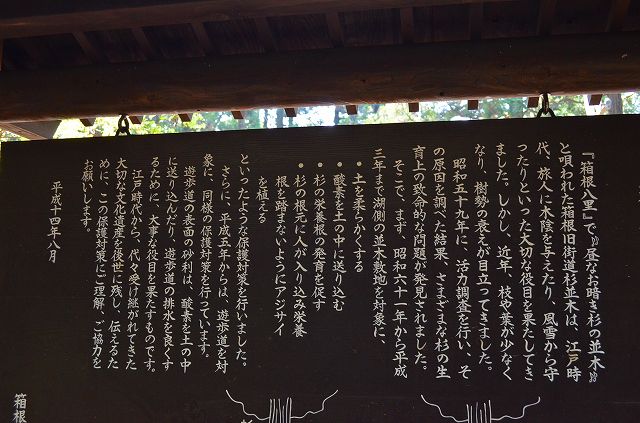 『箱根八里』で〝昼なお暗き杉の並木〟
と唄われた箱根旧街道杉並木は、江戸時
代、旅人に木陰を与えたり、風雪から守
ったりといった大切な役目を果たしてき
ました。しかし、近年、枝や葉が少なく
なり、樹勢の衰えが目立ってきました。
昭和五十九年に、活力調査を行い、そ
の原因を調べた結果、さまざまな杉の生
育上の致命的な問題が発見されました。
そこで、まず、昭和六十一年から平成
三年まで湖側の並木敷地を対象に、
・土を柔らかくする
・酸素を土の中に送り込む
・杉の栄養根の発育を促す
・杉の根元に人が入り込み栄養
根を踏まないようにアジサイ
を植える
といったような保護対策を行いました。
さらに、平成五年からは、遊歩道を対
象に、同様の保護対策を行っています。
遊歩道の表面の砂利は、酸素を土の中
に送り込んだり、遊歩道の排水を良くす
るために、大事な役目を果たすものです。
江戸時代から、代々受け継がれてきた
大切な文化遺産を後世に残し、伝えるた
めに、この保護対策にご理解、ご協力を
お願いします。
平成十四年八月
箱根